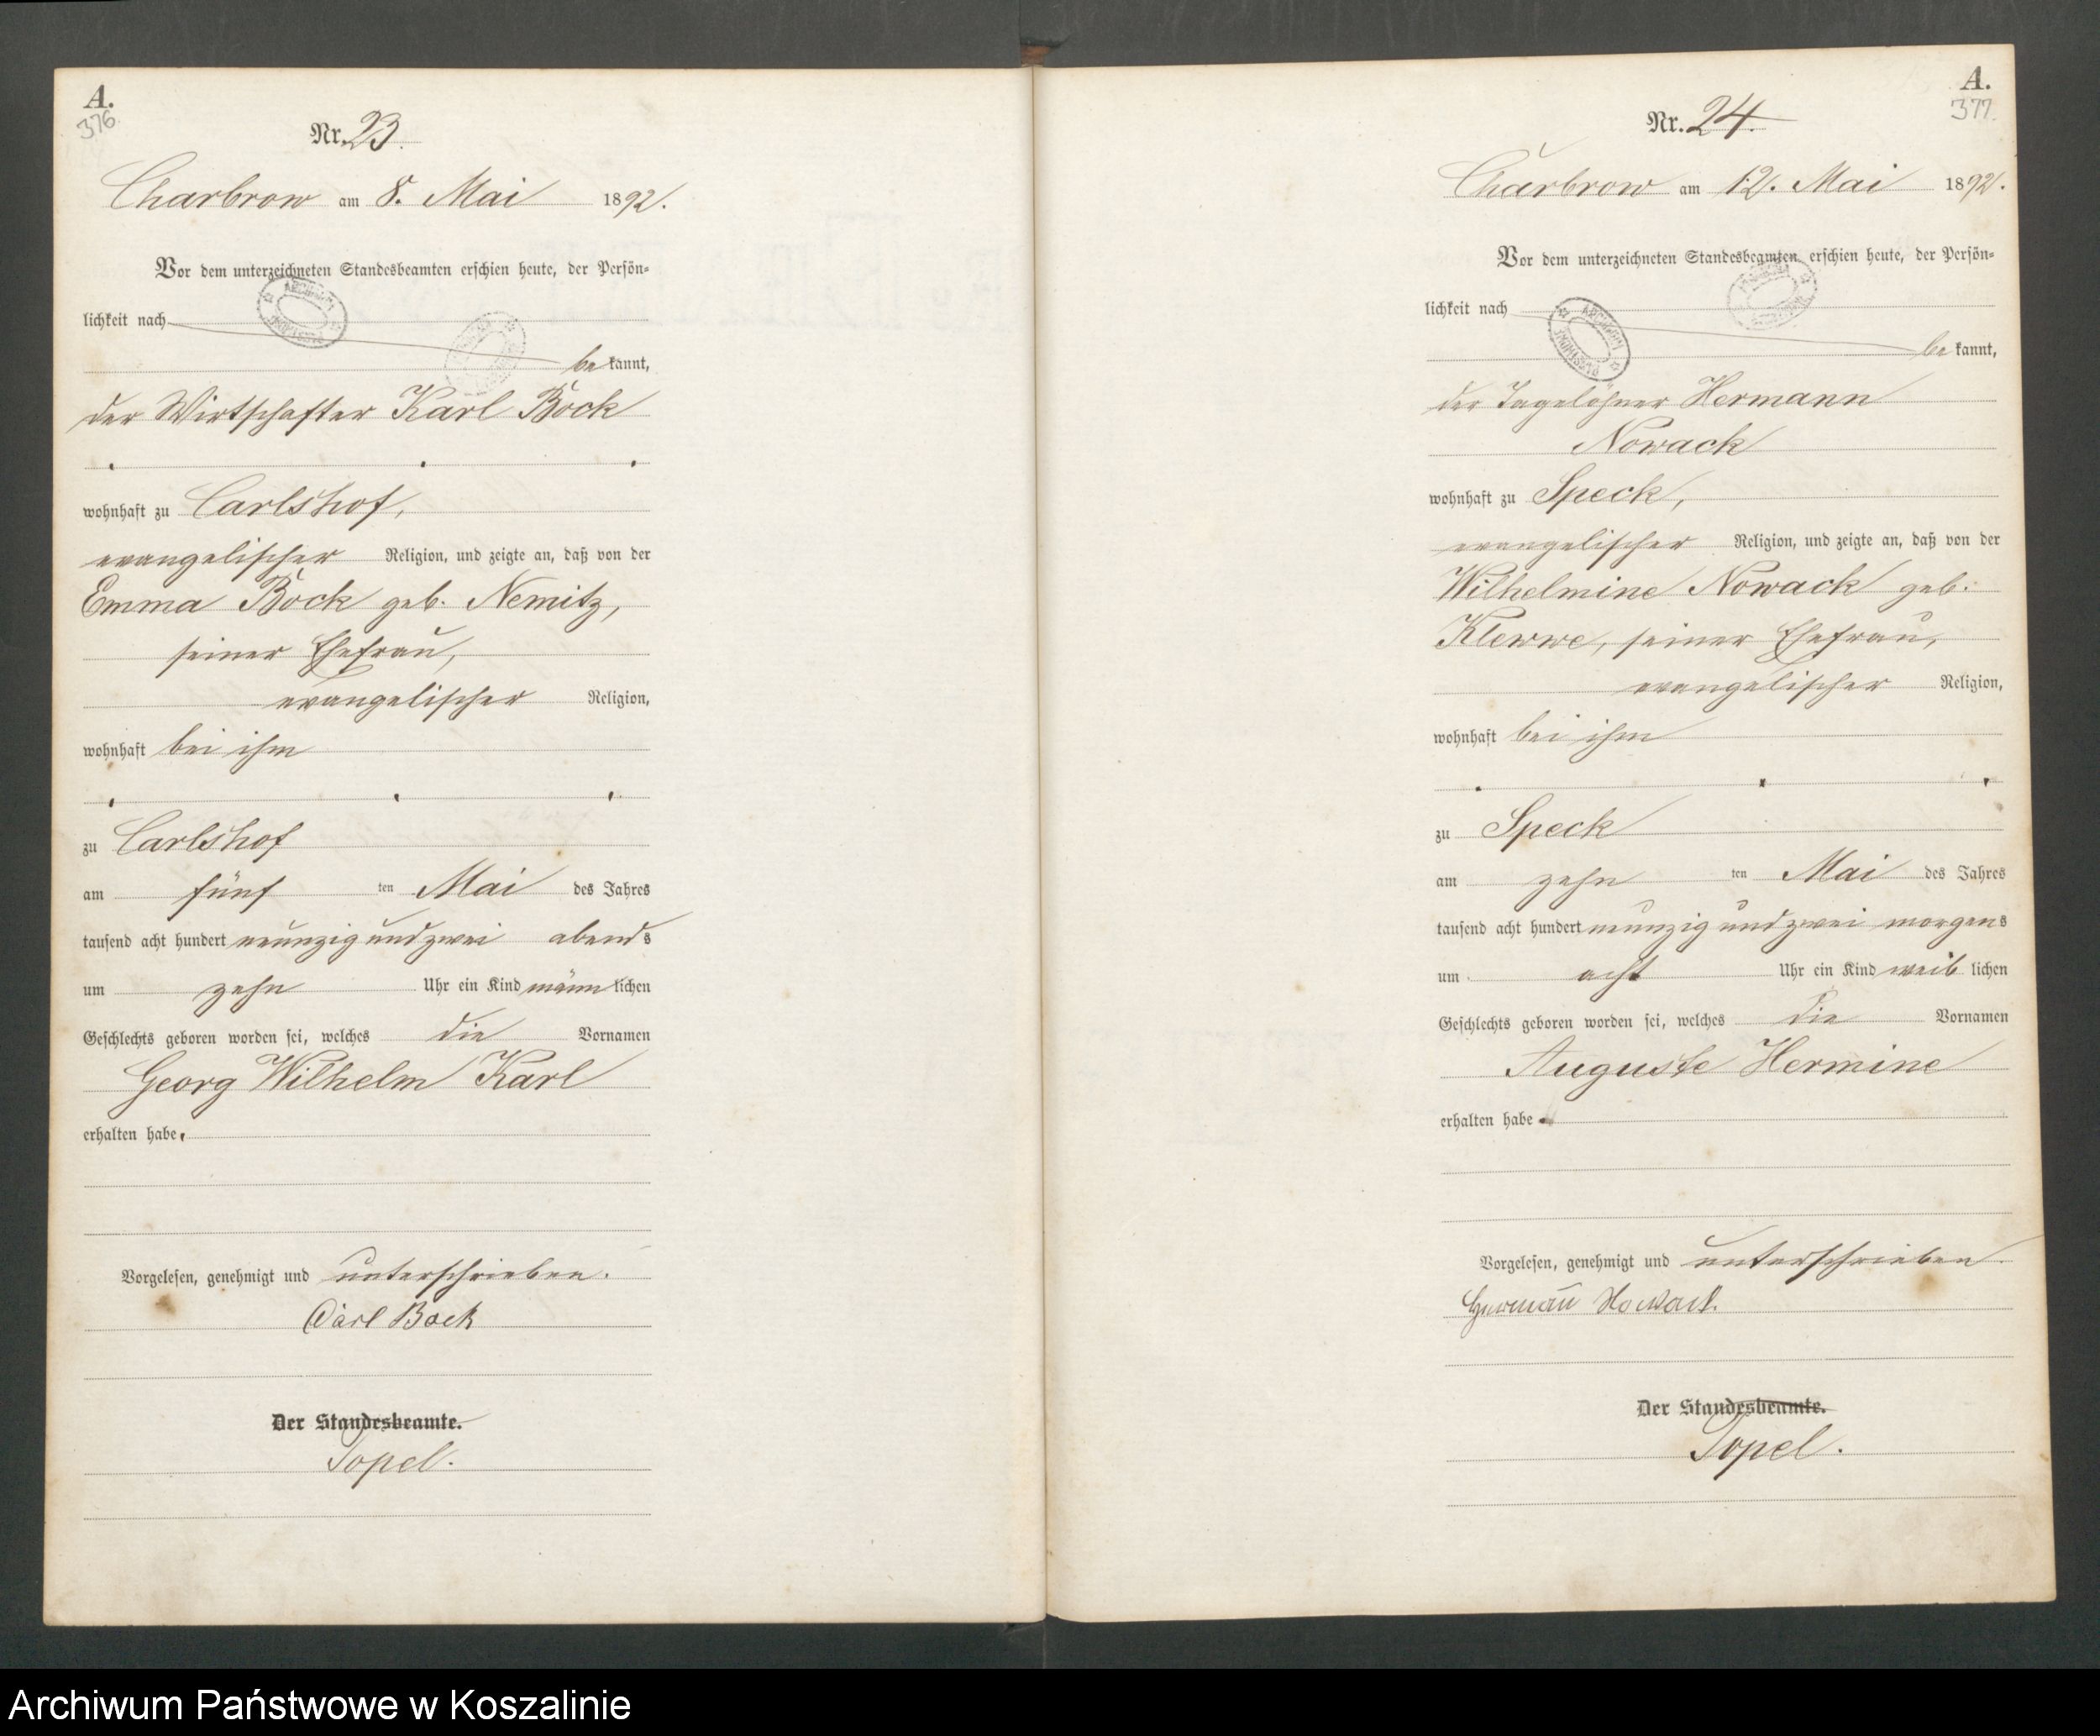 A.
376
Nr. 23.
Charbrow am 8. Mai 1892.
Vor dem unterzeichneten Standesbeamten erschien heute, der Persön-
lichkeit nach
bekannt,
der Wirtschafter Karl Bock
wohnhaft zu Carlshof,
evangelischer Religion, und zeigte an, daß von der
Emma Bock geb. Nemitz,
seiner Ehefrau,
evangelischer Religion,
wohnhaft bei ihm
zu Carlshof
am fünf ten Mai des Jahres
tausend acht hundert neunzig und zwei abends
um zehn Uhr ein Kind männlichen
Geschlechts geboren worden sei, welches die Vornamen
Georg Wilhelm Karl
erhalten habe.
Vorgelesen, genehmigt und unterschrieben.
Carl Bock
Der Standesbeamte.
Topel.
A.
377.
Nr. 24.
Charbrow am 12. Mai 1892.
Vor dem unterzeichneten Standesbeamten erschien heute, der Persön-
lichkeit nach
bekannt,
der Tagelöhner Hermann
Nowack
wohnhaft zu Speck,
evangelischer Religion, und zeigte an, daß von der
Wilhelmine Nowack geb.
Klewwe, seiner Ehefrau,
evangelischer Religion,
wohnhaft bei ihm
zu Speck
am zehn ten Mai des Jahres
tausend acht hundert neunzig und zwei morgens
um acht Uhr ein Kind weiblichen
Geschlechts geboren worden sei, welches die Vornamen
Auguste Hermine
erhalten habe.
Vorgelesen, genehmigt und unterschrieben.
Herman Nowack.
Der Standesbeamte.
Topel.
Archiwum Państwowe w Koszalinie